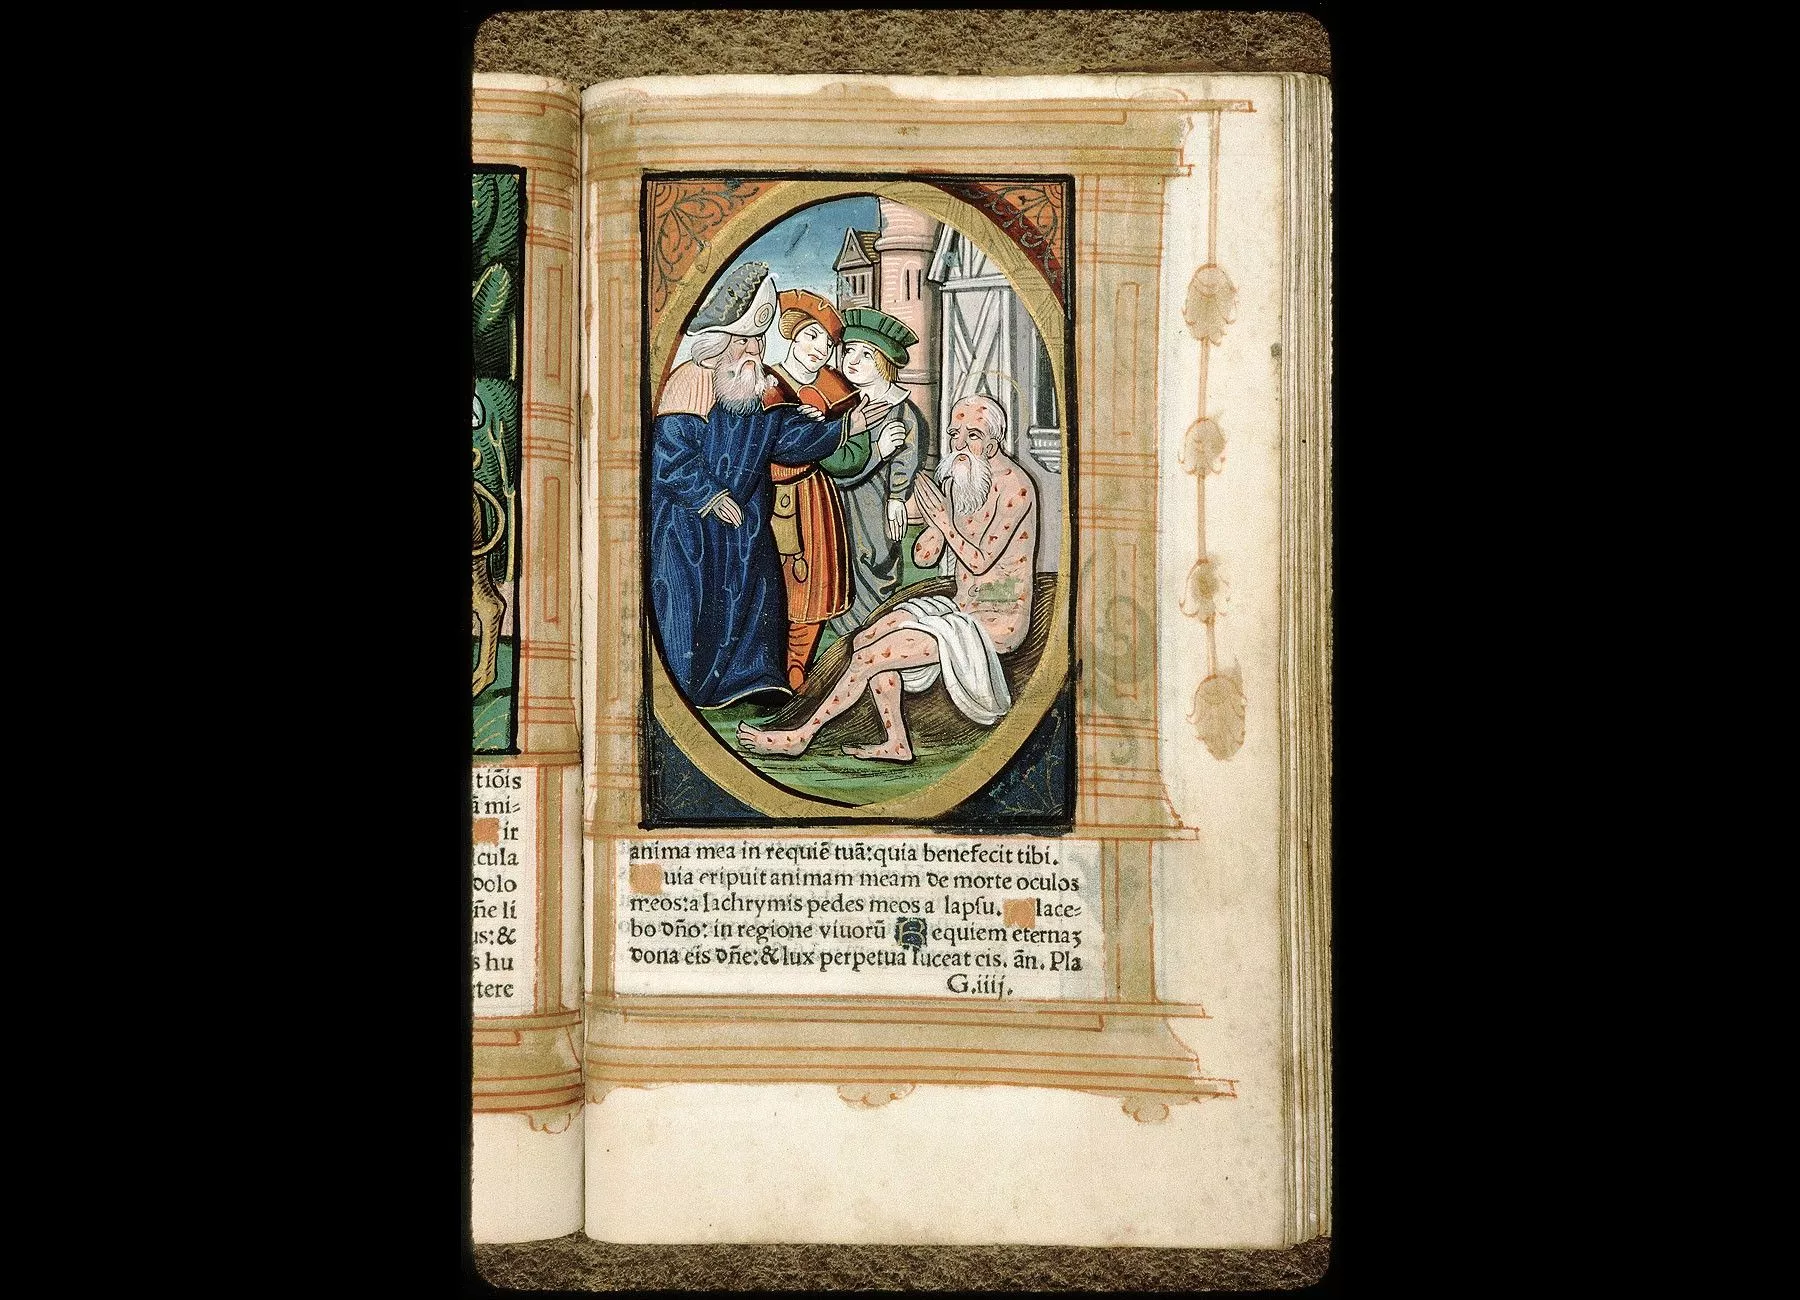 tiõis
ã mi-
ir
cula
dolo
ñe li
us: &
s hu
rtere
anima mea in requiẽ tuã: quia benefecit tibi.
uia eripuit animam meam de morte oculos
meos: a lachrymis pedes meos a lapsu. lace-
bo dño: in regione viuorũ Requiem eternaʒ
dona eis dñe: & lux perpetua luceat eis. ãn. Pla
G.iiij.